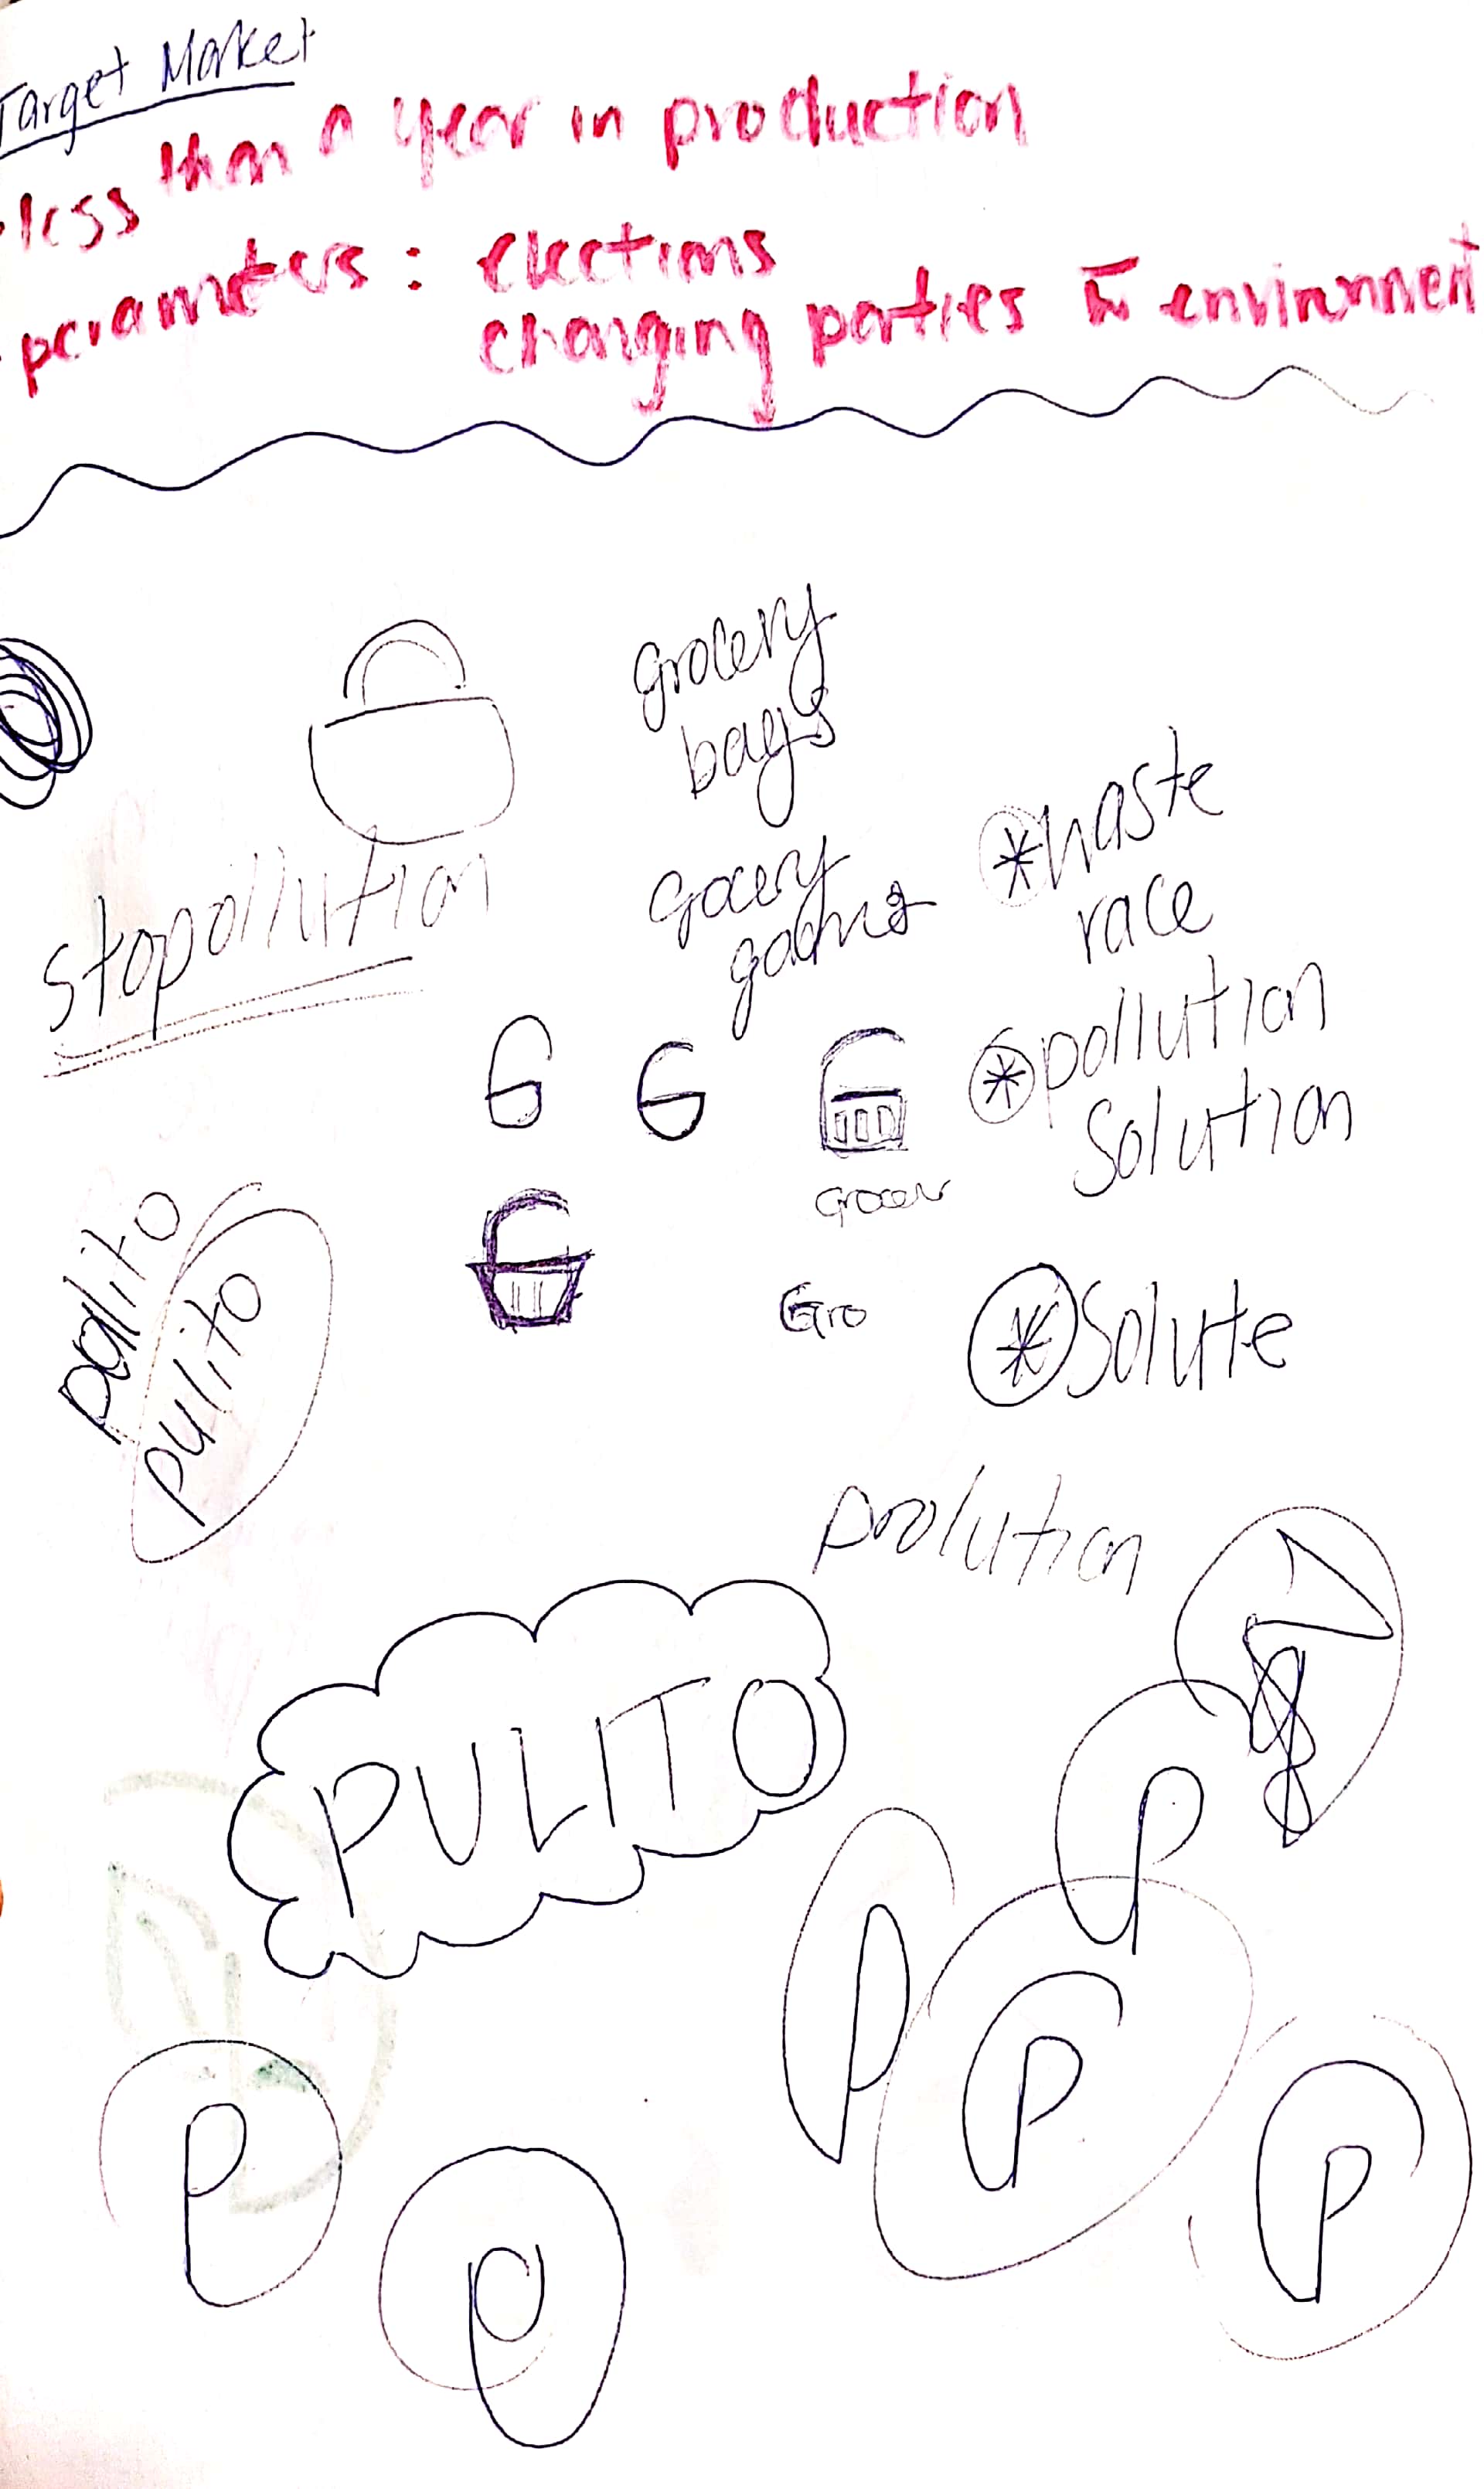 Target Market
less than a year in production
parameters: elections
changing parties in environment
grocery
bags
stopollution
waste
race
pollution
solution
palito
pulito
Gro
Solute
prolution
PULITO
P
P
P
P
P
P